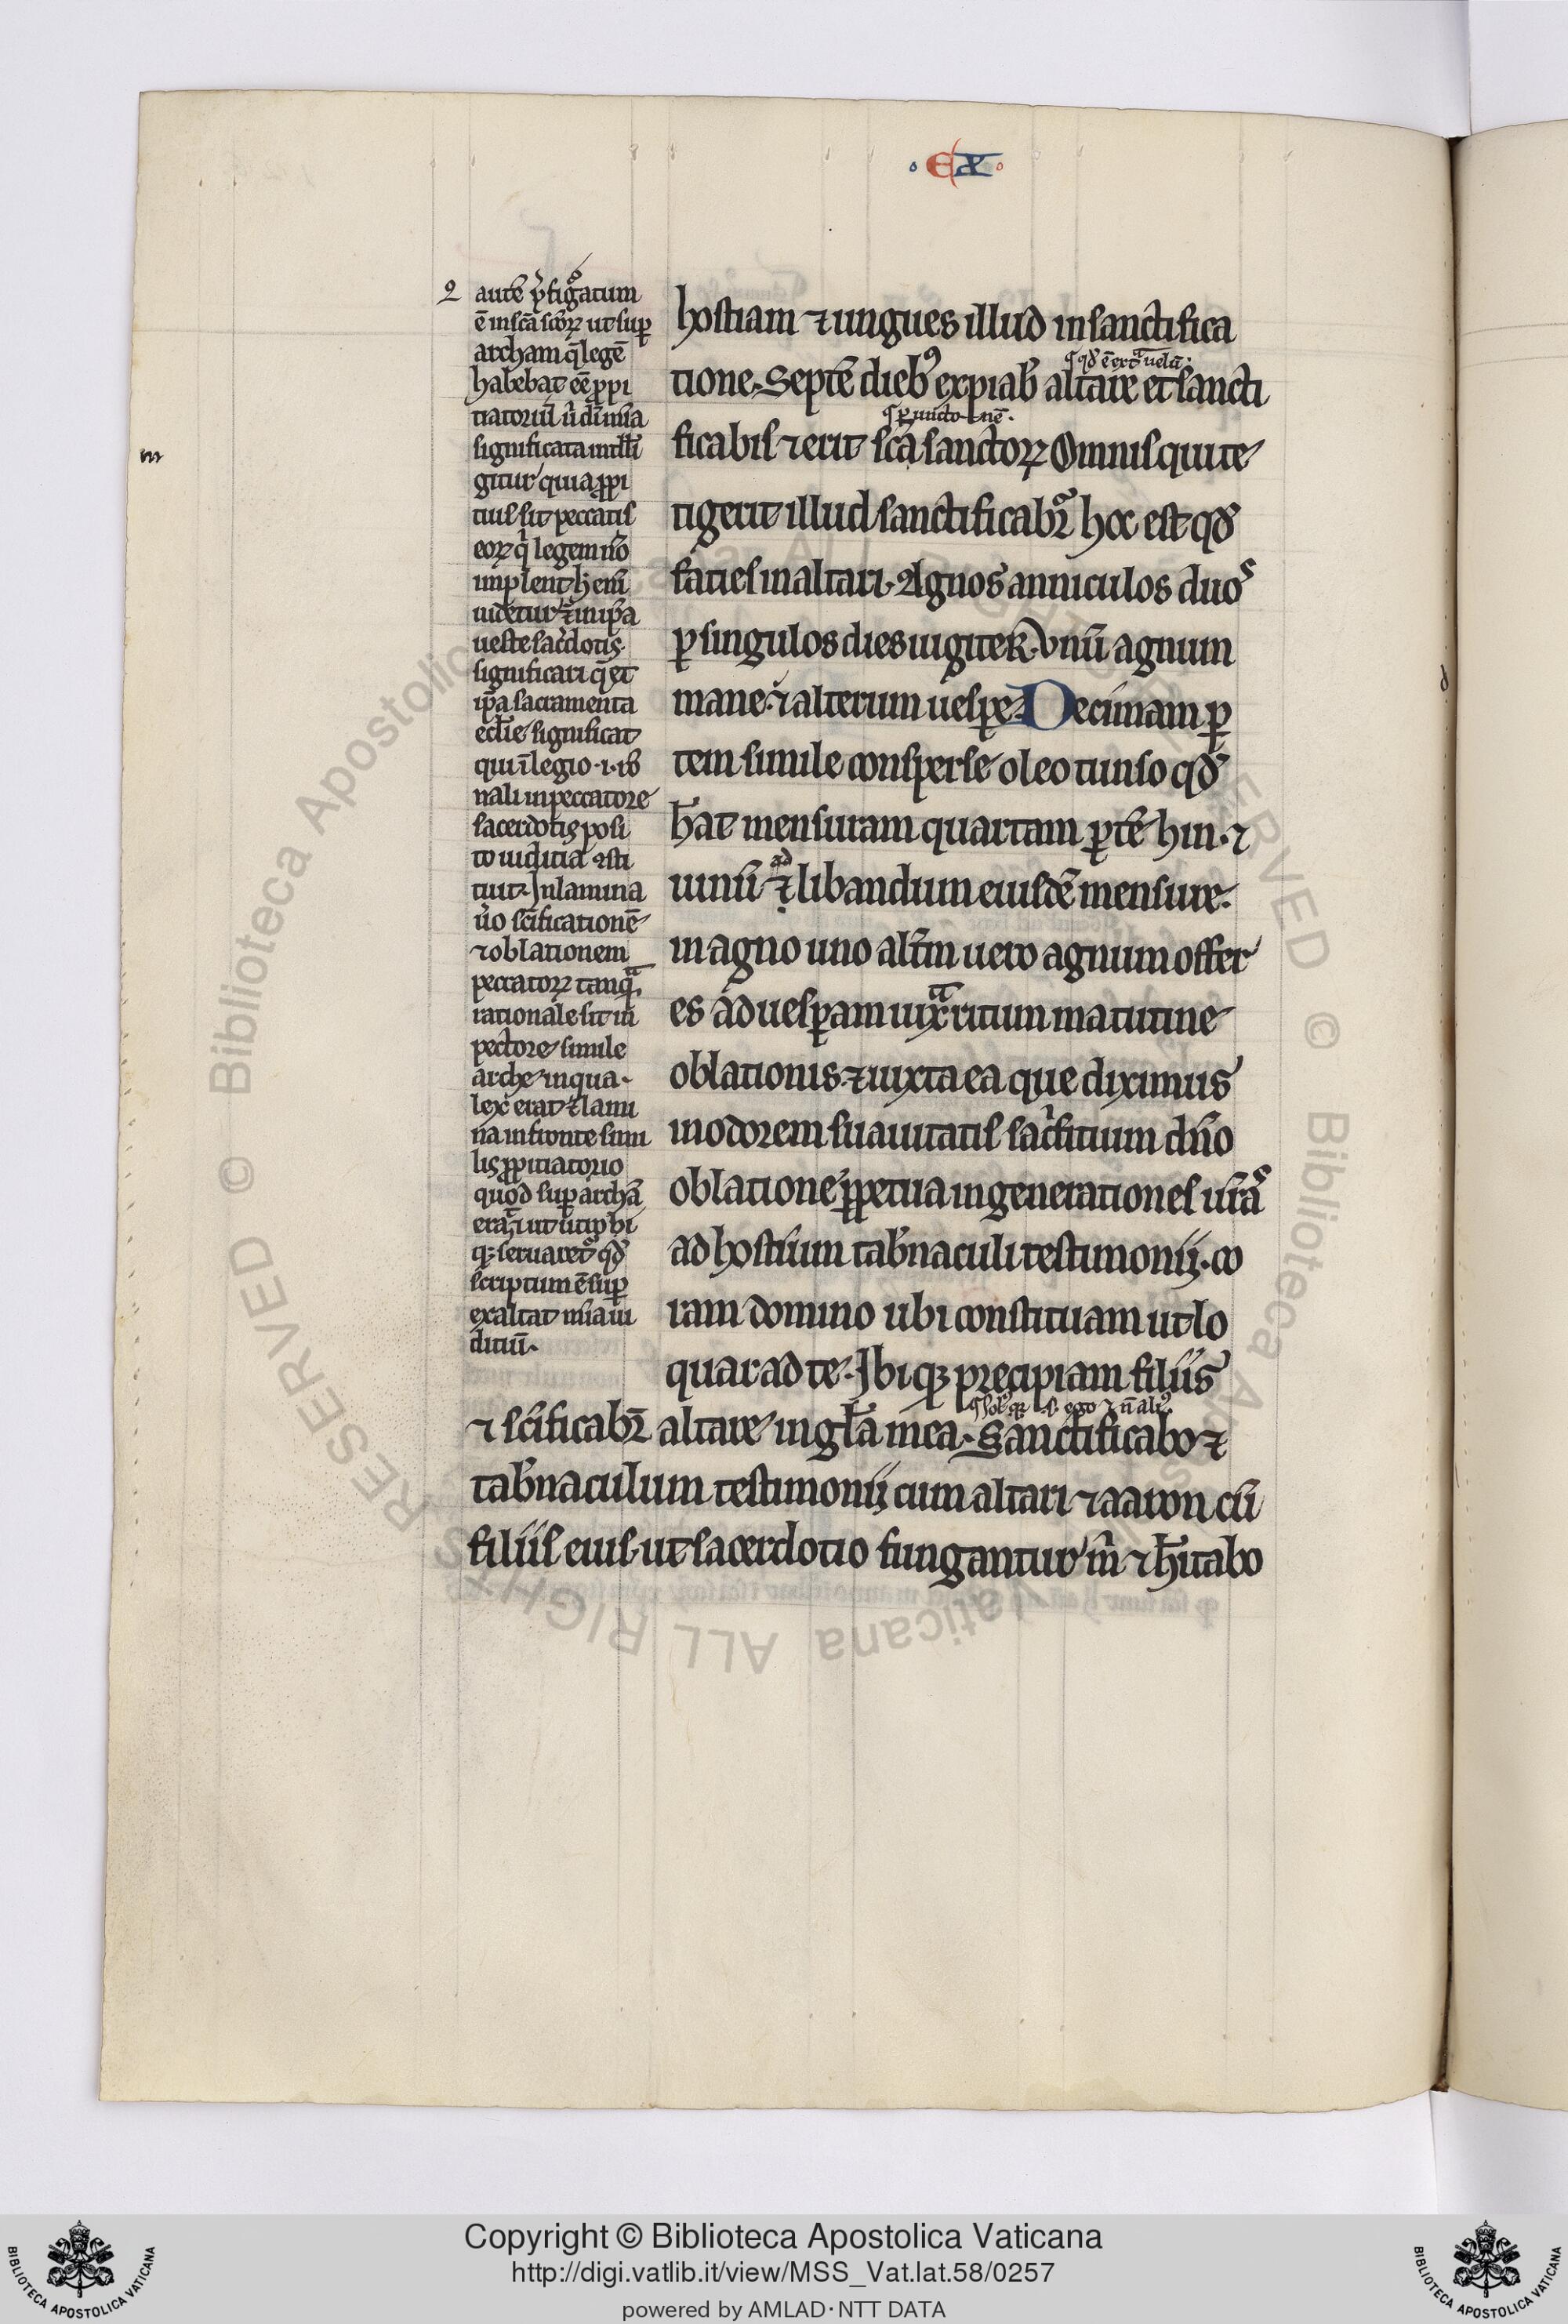 · EX ·
autē p̄figᵒatum
ē in scā scōꝝ ut suꝑ
archam q̄ legē
habebat eē ꝓpi
tiatoriū ı̉ dn̄i mīa
significata intelli
gitur quia ꝓpi
tius sit peccatis
eoꝝ qͥ legem nō
implent
uidetur ⁊ in ip̄a
ueste sac̄dotis
significari q̄ et
ip̄a sacramenta
eccl̄ie significat
nali in peccatore
sacerdotis posi
to iudicia ꝯsti
tuit Jn lamina
u̓o sc̄ificationē
⁊ oblationem
peccatoꝝ tanqᷓ
rationale sit in
pectore simile
arche in qua
lex erat ⁊ lami
na in fronte simi
lis ꝓpitiatorio
quod suꝑ archā
erat ut utrobi
qꝫ seruaretᵒ qđ
scriptum ē suꝑ
exaltat mīa iu
ditiū·
hostiam ⁊ ungues illud in sanctifica
tione. Septē diebꝰ expiab̄ altare et sancti
ficabis ⁊ erit scā sanctoꝝ Omnis qui te
tigerit illud sanctificabit̄ hoc est qđ
facies in altari. Agnos anniculos duoˢ
ꝑ singulos dies iugiter. Vnū agnum
mane. ⁊ alterum uesꝑe. Decimam ꝑ
tem simile consperse oleo tunso qđ
h̄at mensuram quartam ꝑtē hin. ⁊
uinū ad libandum eiusdē mensure.
in agno uno alt̄m uero agnum offer
es ad uesꝑam iuxᵗᵃ ritum matutine
oblationis. ⁊ iuxta ea que diximus
in odorem suauitatis sacͥfitium dn̄o
oblatione ꝑpetua in generationes ur̄aˢ
ad hostium tab̄naculi testimonij. co
ram domino ubi constituam ut lo
quar ad te. Jbiqꝫ precipiam filiis
⁊ sc̄ificabit̄ altare in gl̄a mea. Sanctificabo ⁊
tab̄naculum testimonij cum altari ⁊ aaron cū
filiis eius. ut sacerdotio fungantur m̄ ⁊ h̄itabo
Copyright © Biblioteca Apostolica Vaticana
http://digi.vatlib.it/view/MSS_Vat.lat.58/0257
powered by AMLAD·NTT DATA
BIBLIOTECA APOSTOLICA VATICANA
BIBLIOTECA APOSTOLICA VATICANA